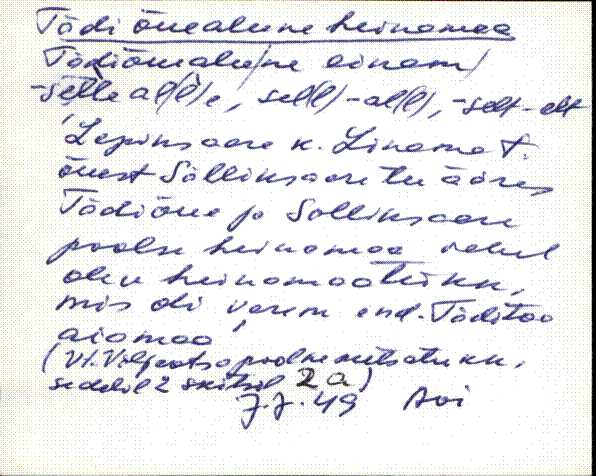 Tädi õuealune heinamaa
Tädiõuealu/ne einam/
-selle al(l)e, sel(l)-al(l), -selt-alt
'Lepinsaare k. Linama t.
õuest Sõllinsaare tee ääres
Tädiõue ja Sollinsaare
poolse heinamaa vahel
olev heinamaatükk,
mis oli varem end. Täditaa
aiamaa'
(vt. Vilpatsapoolne metsatukk,
sedelil 2 skitsil 2a)
J.J. 49 Avi